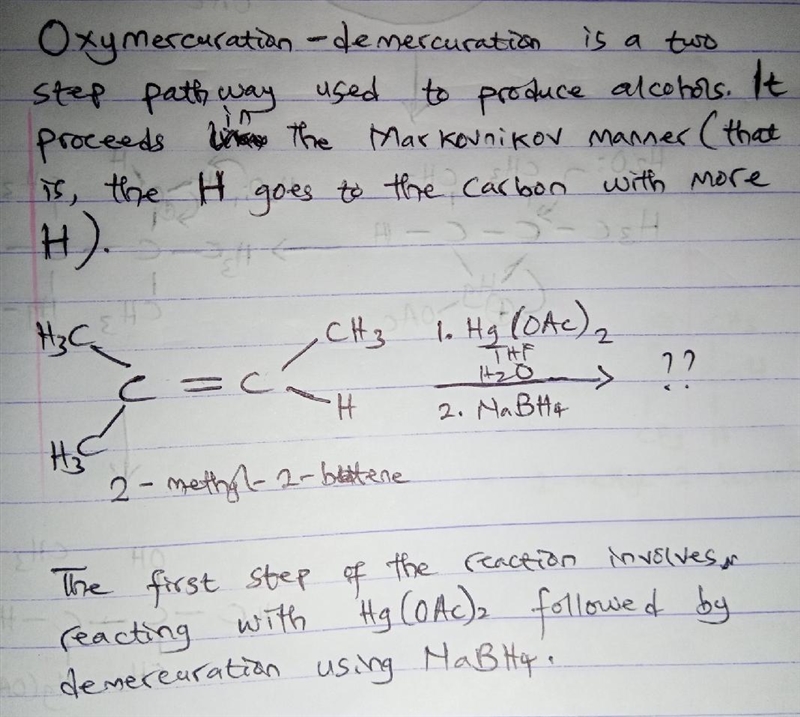 Oxymercuration-demercuration is a two
step pathway used to produce alcohols. It
proceeds in the Markovnikov manner (that
is, the H goes to the carbon with more
H).
H3C
CH3
C = C
H
H3C
1. Hg(OAc)2
THF
H2O
2. NaBH4
??
2-methyl-2-butene
The first step of the reaction involves
reacting with Hg(OAc)2 followed by
demercuration using NaBH4.